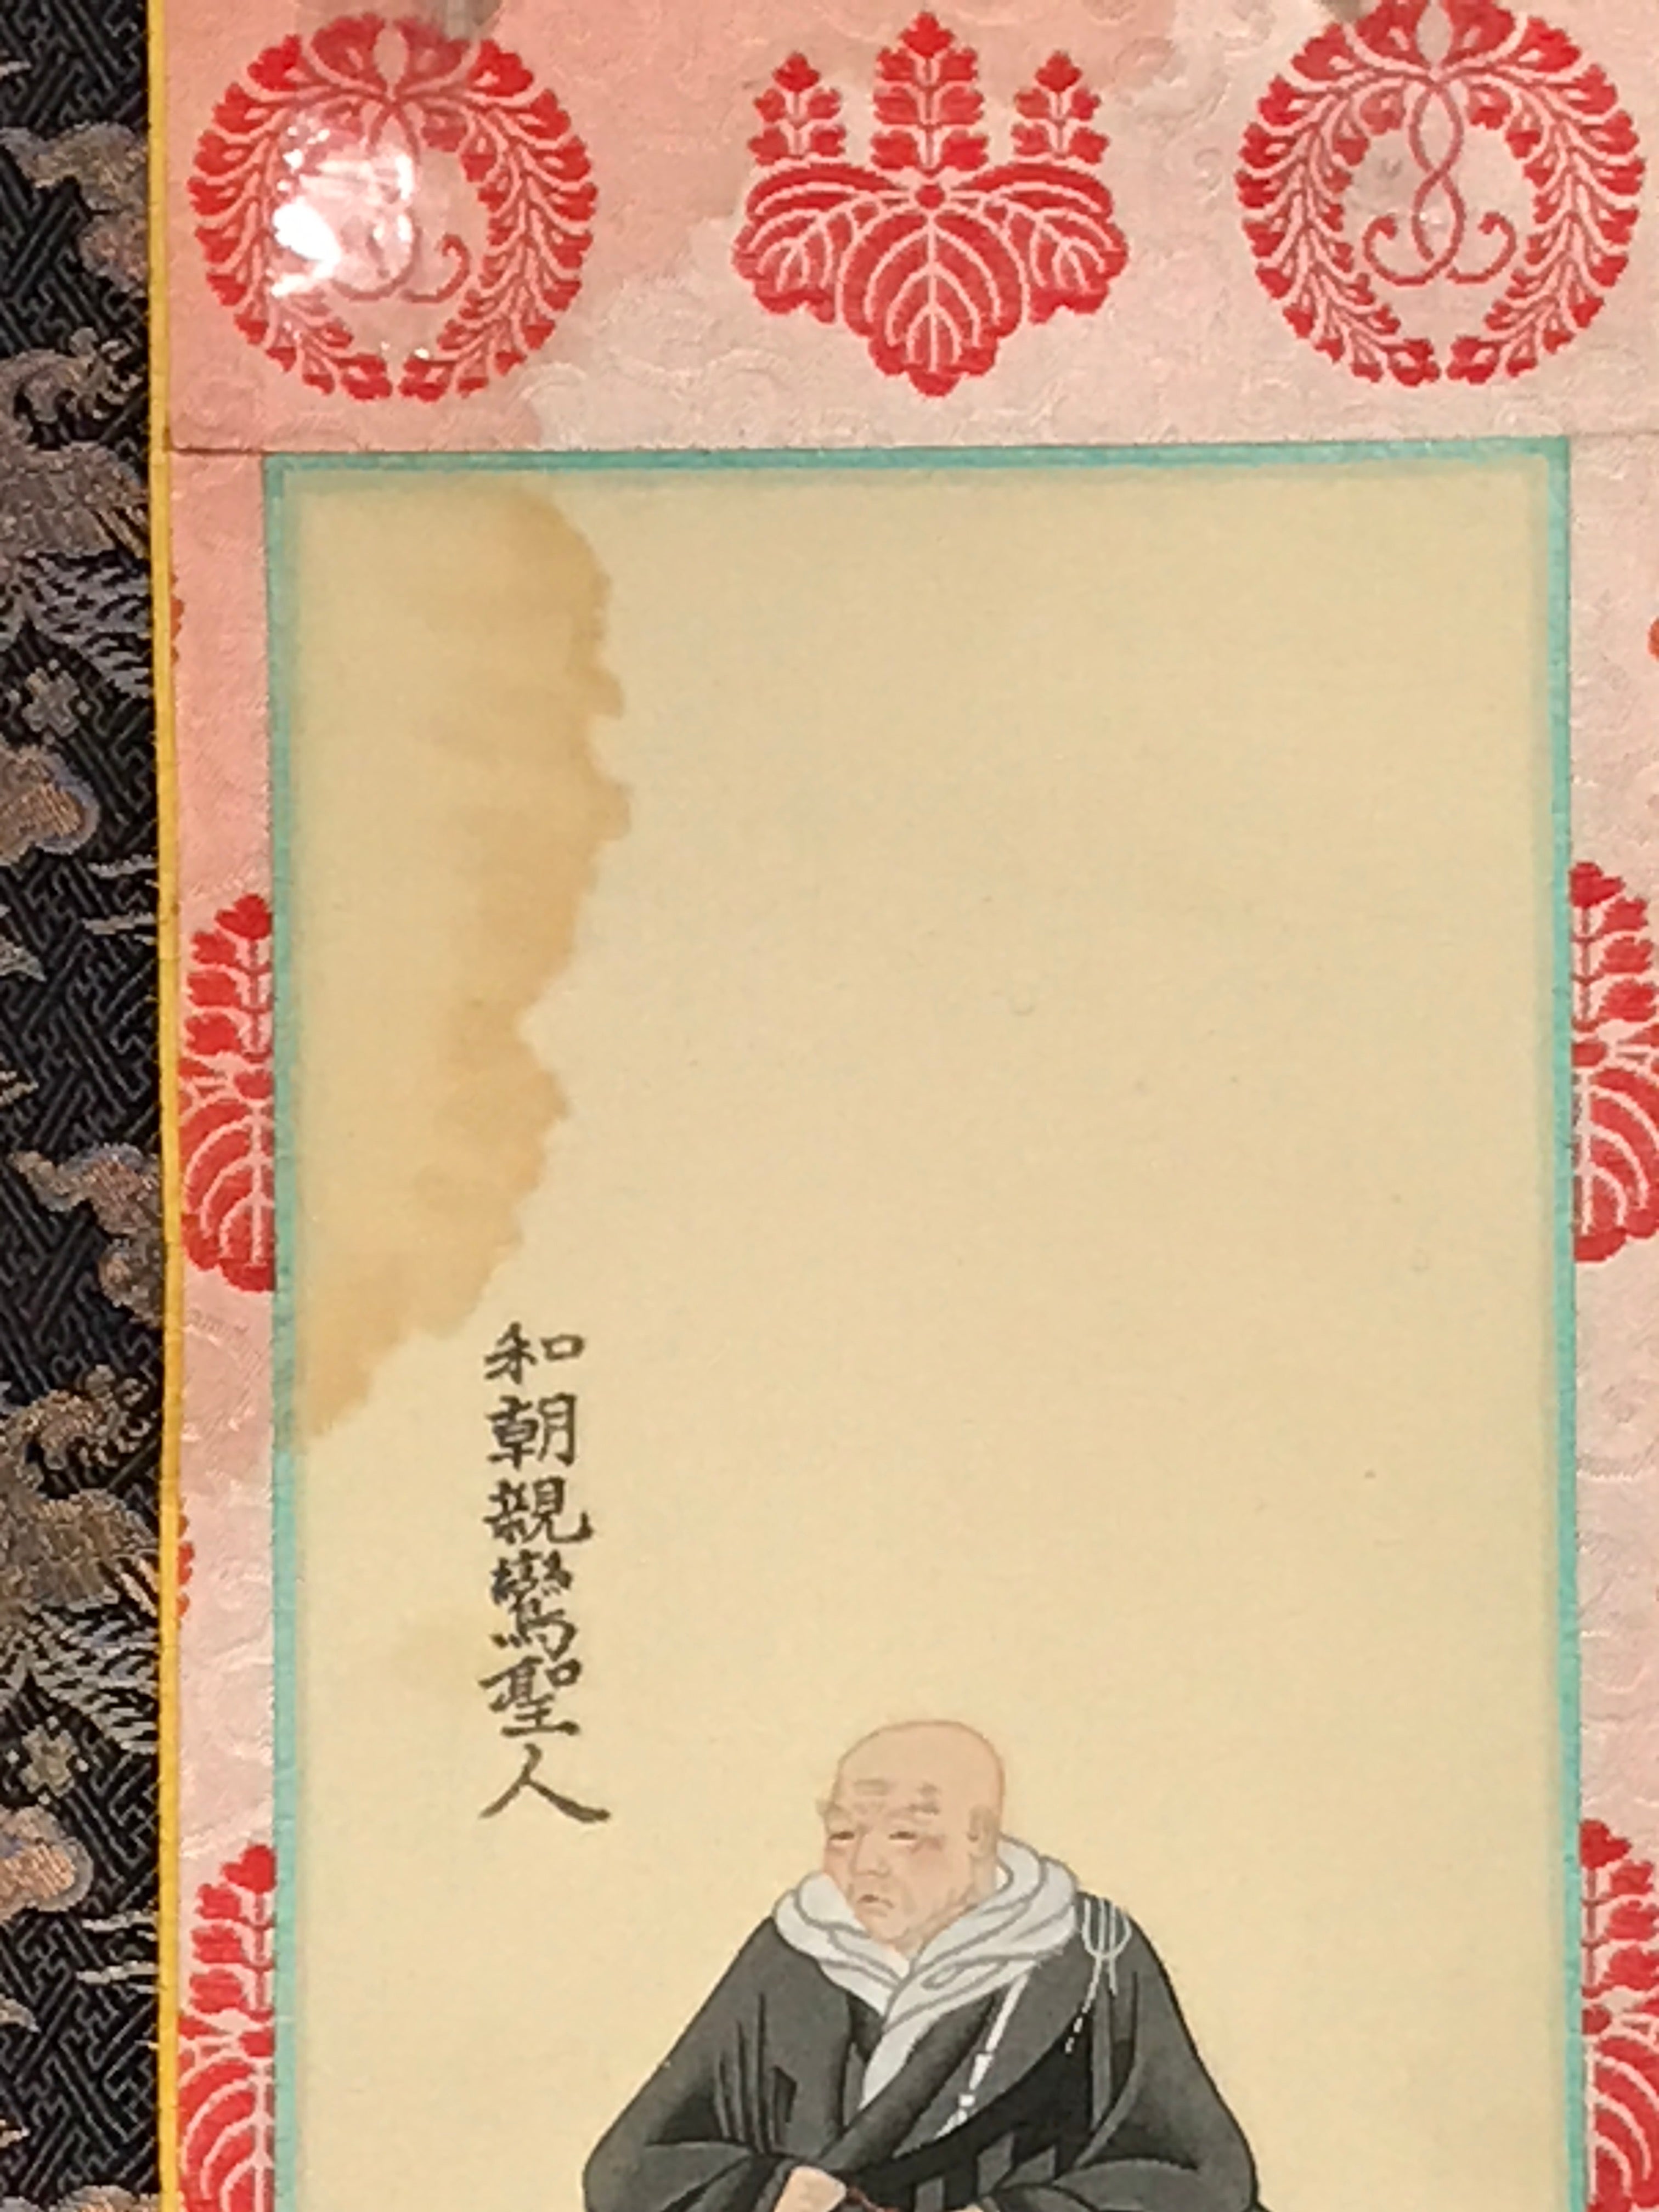 和朝親鸞聖人